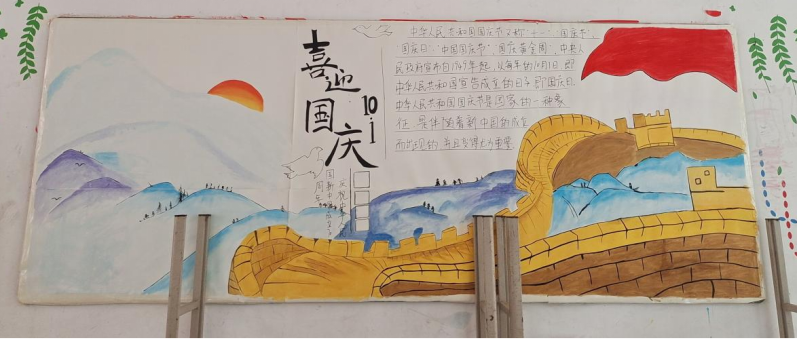 喜迎国庆
10.1
中华人民共和国国庆节又称"十一"、"国庆节"、
"国庆日""中国国庆节""国庆黄金周",中央人
民政府宣布自1949年起,以每年的10月1日 即
中华人民共和国宣告成立的日子 即国庆日
中华人民共和国国庆节是国家的一种象
征 是伴随着新中国的成立
而出现的 并且变得尤为重要
周年